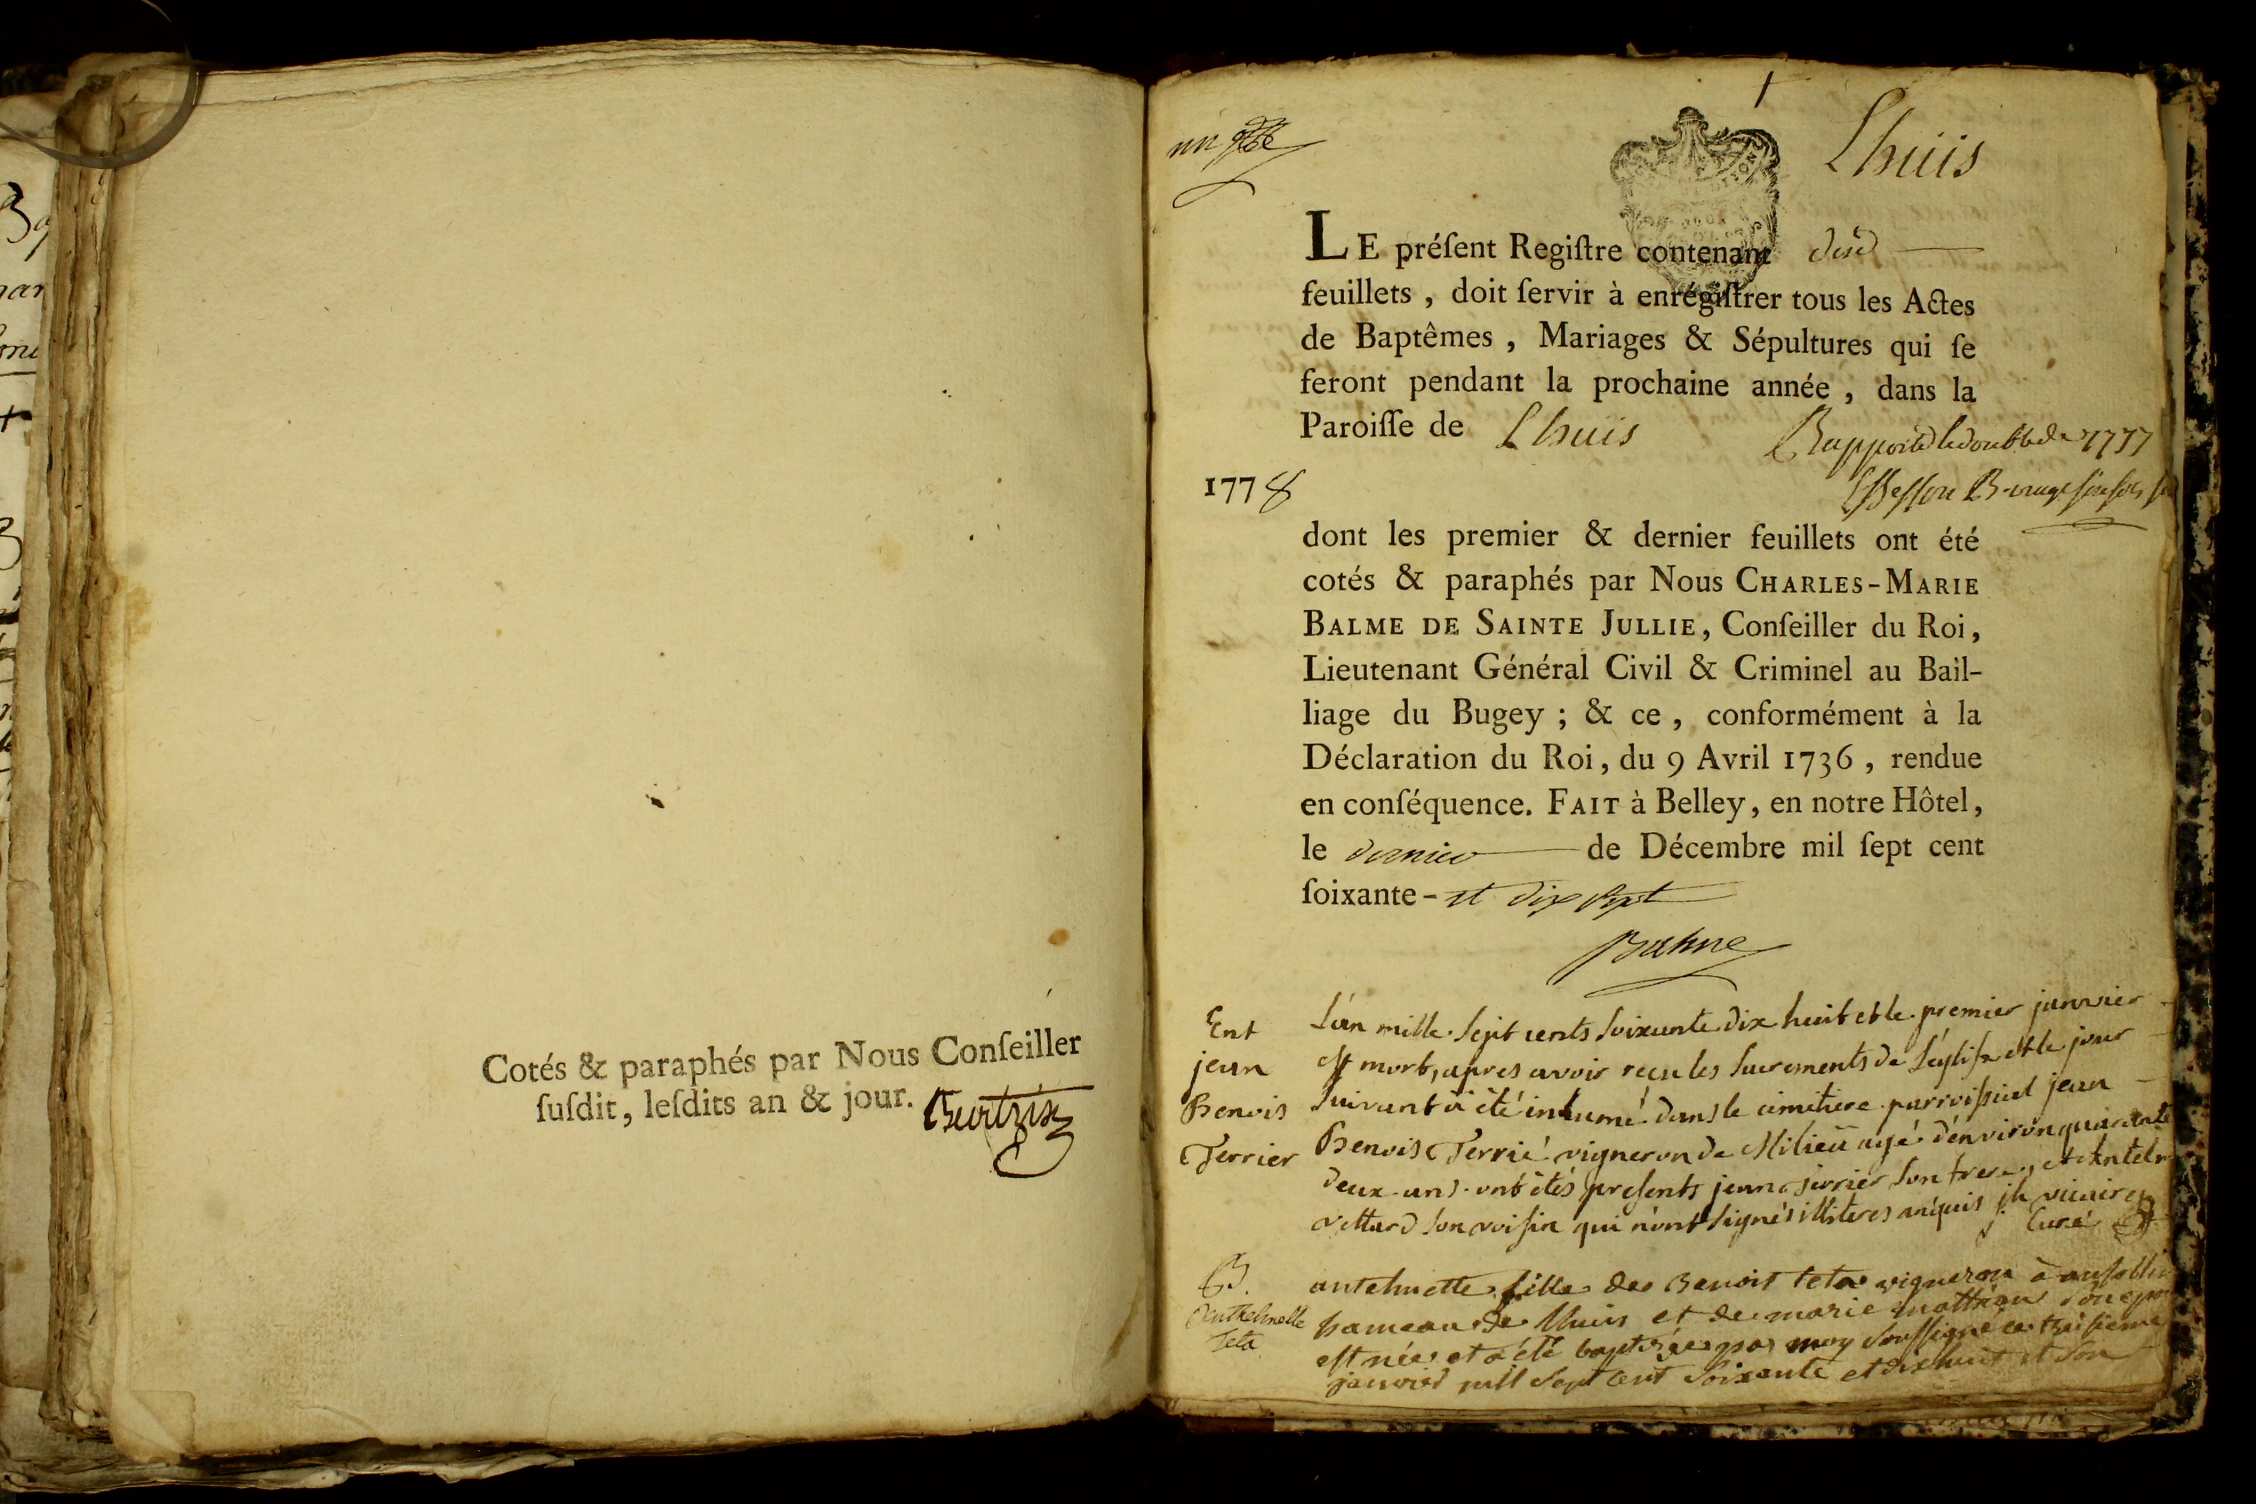 Cotés & paraphés par Nous Conſeiller
ſuſdit, leſdits an & jour.
un
Lhuis
LE préſent Regiſtre contenant dix
feuillets, doit ſervir à enregiſtrer tous les Actes
de Baptêmes, Mariages & Sépultures qui ſe
feront pendant la prochaine année, dans la
Paroiſſe de Lhuis
Rapporté le double de 1777
1778
dont les premier & dernier feuillets ont été
cotés & paraphés par Nous CHARLES-MARIE
BALME DE SAINTE JULLIE, Conſeiller du Roi,
Lieutenant Général Civil & Criminel au Bail-
liage du Bugey; & ce, conformément à la
Déclaration du Roi, du 9 Avril 1736, rendue
en conſéquence. FAIT à Belley, en notre Hôtel,
le dernier de Décembre mil ſept cent
ſoixante-et dix ſept
Balme
Ent
jean
Benois
Terrier
L'an mille sept cents soixante dix huit et le premier janvier
est mort, apres avoir reçu les sacrements de l'église et le jour
suivant à été inhumé dans le cimetiere parroissial jean
Benois Terrié vigneron de Milieü agé d'environ quarante
deux ans ont étés presents jean son frere, et Antelme
vettard son voisin qui n'ont signés illiteres
curé
B.
Anthelmette
Teta
antelmette fille de Benoit teta vigneron à
hameau de lhuis et de marie
est née et a été baptisée par moy soussigné ce troisieme
janvier mil sept cent soixante et dix huit et son